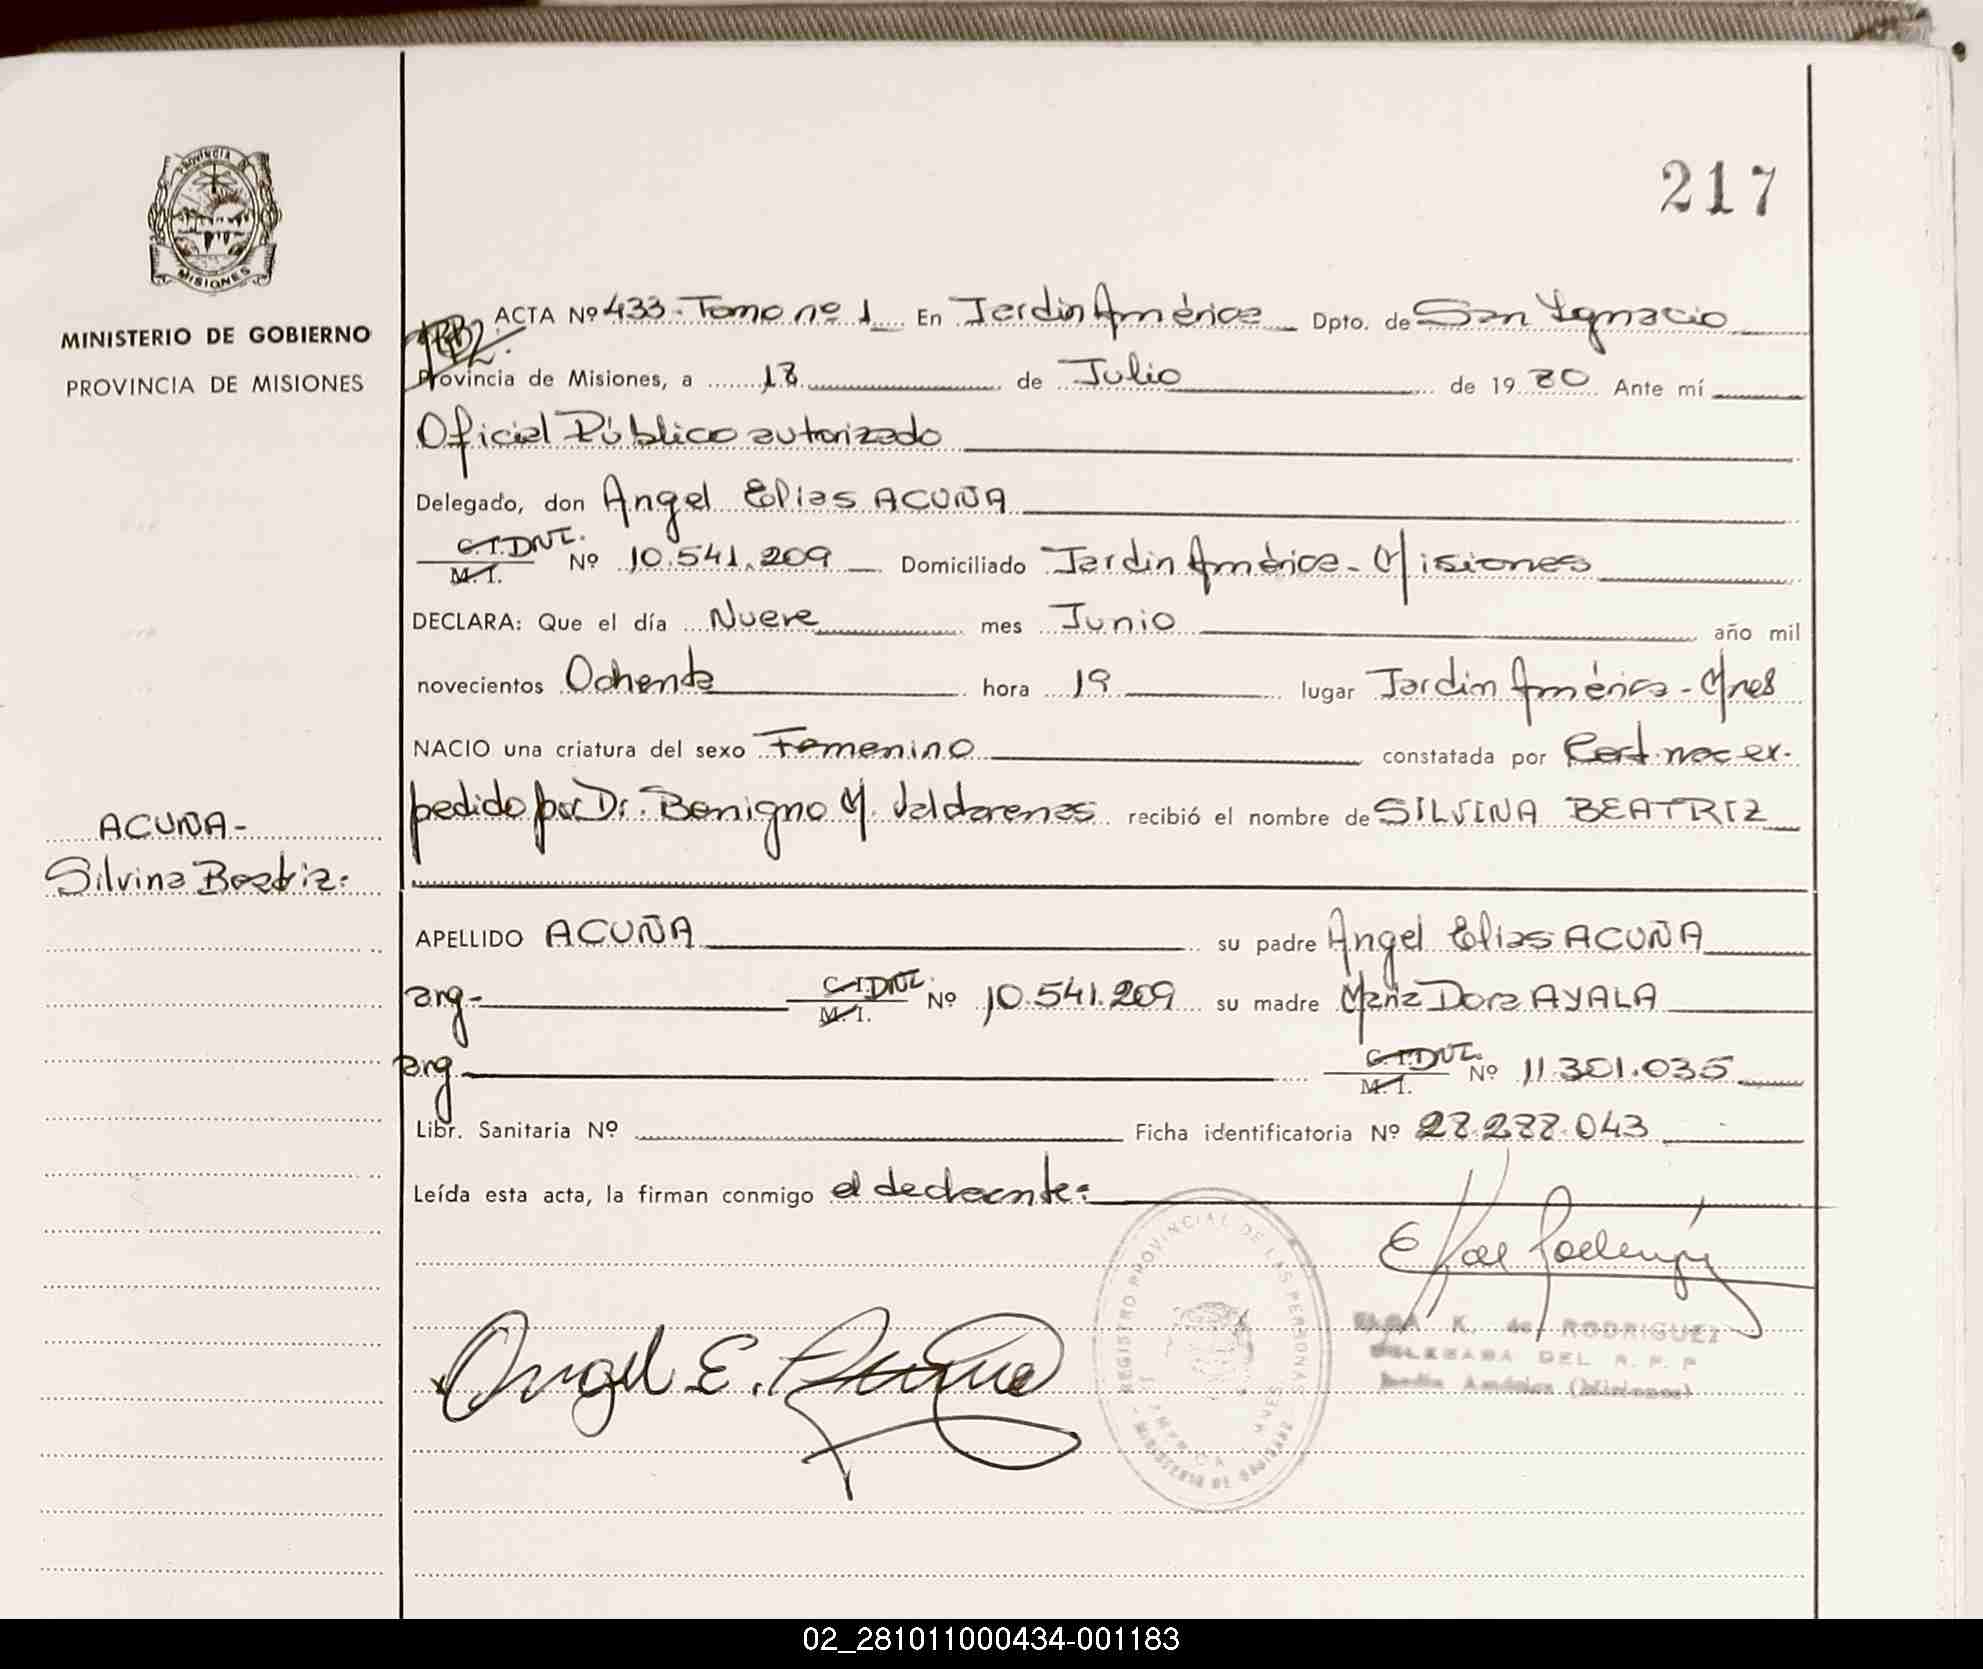 217
PROVINCIA DE
MISIONES
MINISTERIO DE GOBIERNO
PROVINCIA DE MISIONES
ACTA Nº 433-Tomo nº 1 En Jardin América Dpto. de San Ignacio
Provincia de Misiones, a 18 de Julio de 1980 Ante mí
Oficial Público autorizado
Delegado, don Angel Elias ACUÑA
C.I.DNI.
M.I. Nº 10.541.209 Domiciliado Jardin América-Misiones
DECLARA: Que el día Nueve mes Junio año mil
novecientos Ochenta hora 19 lugar Jardin América-Mnes
NACIO una criatura del sexo Femenino constatada por Cert.nac ex-
pedido por Dr. Benigno M. Valdarenas recibió el nombre de SILVINA BEATRIZ
ACUÑA-
Silvina Beatriz.
APELLIDO ACUÑA su padre Angel Elias ACUÑA
arg- C.I.DNI. M.I. Nº 10.541.209 su madre Maria Dora AYALA
arg C.I.DNI. M.I. Nº 11.301.035
Libr. Sanitaria Nº Ficha identificatoria Nº 28.288.043
Leída esta acta, la firman conmigo el declarante:
Angel E. Acuña
REGISTRO PROVINCIAL DE LAS PERSONAS
MINISTERIO DE GOBIERNO
ELSA K. de RODRIGUEZ
DELEGADA DEL R. P. P
Jardín América (Misiones)
02_281011000434-001183